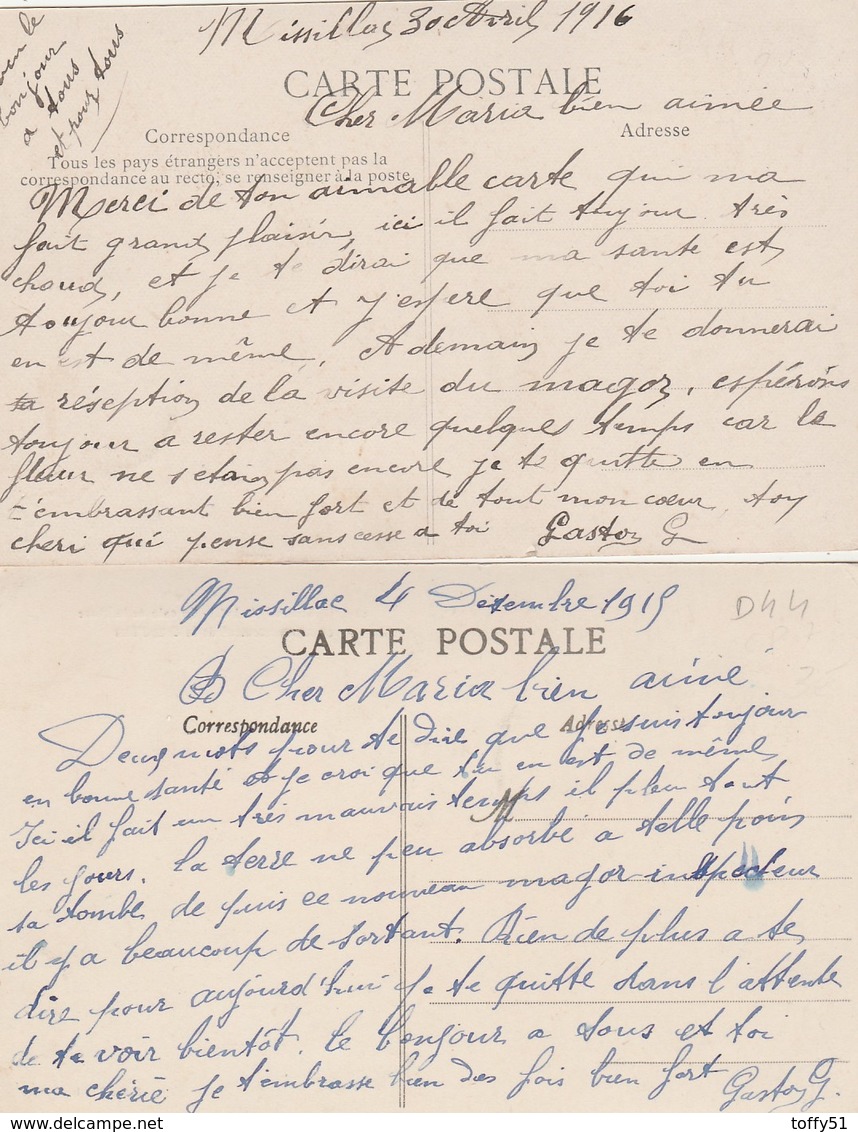 Missillac 30 Avril 1916
le
bonjour
a tous
et pour tous
CARTE POSTALE
Cher Maria bien aimée
Correspondance
Adresse
Tous les pays étrangers n'acceptent pas la
correspondance au recto, se renseigner à la poste.
Merci de ton aimable carte qui ma
fait grand plaisir, ici il fait toujour très
chaud, et je te dirai que ma sante est
toujour bonne et j'espere que toi tu
en est de même, A demain je te donnerai
réseption de la visite du magor, espérons
toujour a rester encore quelques temps car la
fleur ne pas encore je te quitte en
t'embrassant bien fort et de tout mon cœur, ton
cheri qui pense sans cesse a toi Gaston G
Missillac 4 Dezembre 1915
D44
CARTE POSTALE
Cher Maria bien aimé
Correspondance
Adresse
Deux mots pour te dire que je suis toujour
en bonne santé et je croi que tu en est de même,
M
Ici il fait un très mauvais temps il pleu tout
les jours. la terre ne peu absorbé a telle poins
sa tombe, de puis ce nouveau magor inspecteur
il y a beaucoup de sortant. Rien de plus a te
dire pour aujourd'hui je te quitte dans l'attente
de te voir bientôt. le bonjour a tous et toi
ma chérie je t'embrasse bien des fois bien fort Gaston G.
toffy51